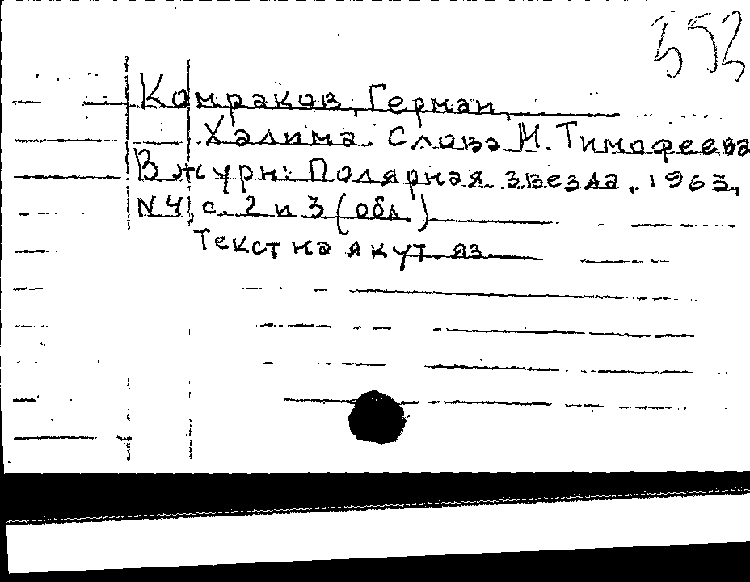 553
Комраков, Герман.
Халима. Слова И. Тимофеева
В журн: Полярная звезда, 1963,
N 4, с. 2 и 3 (обл.)
Текст на якут. яз